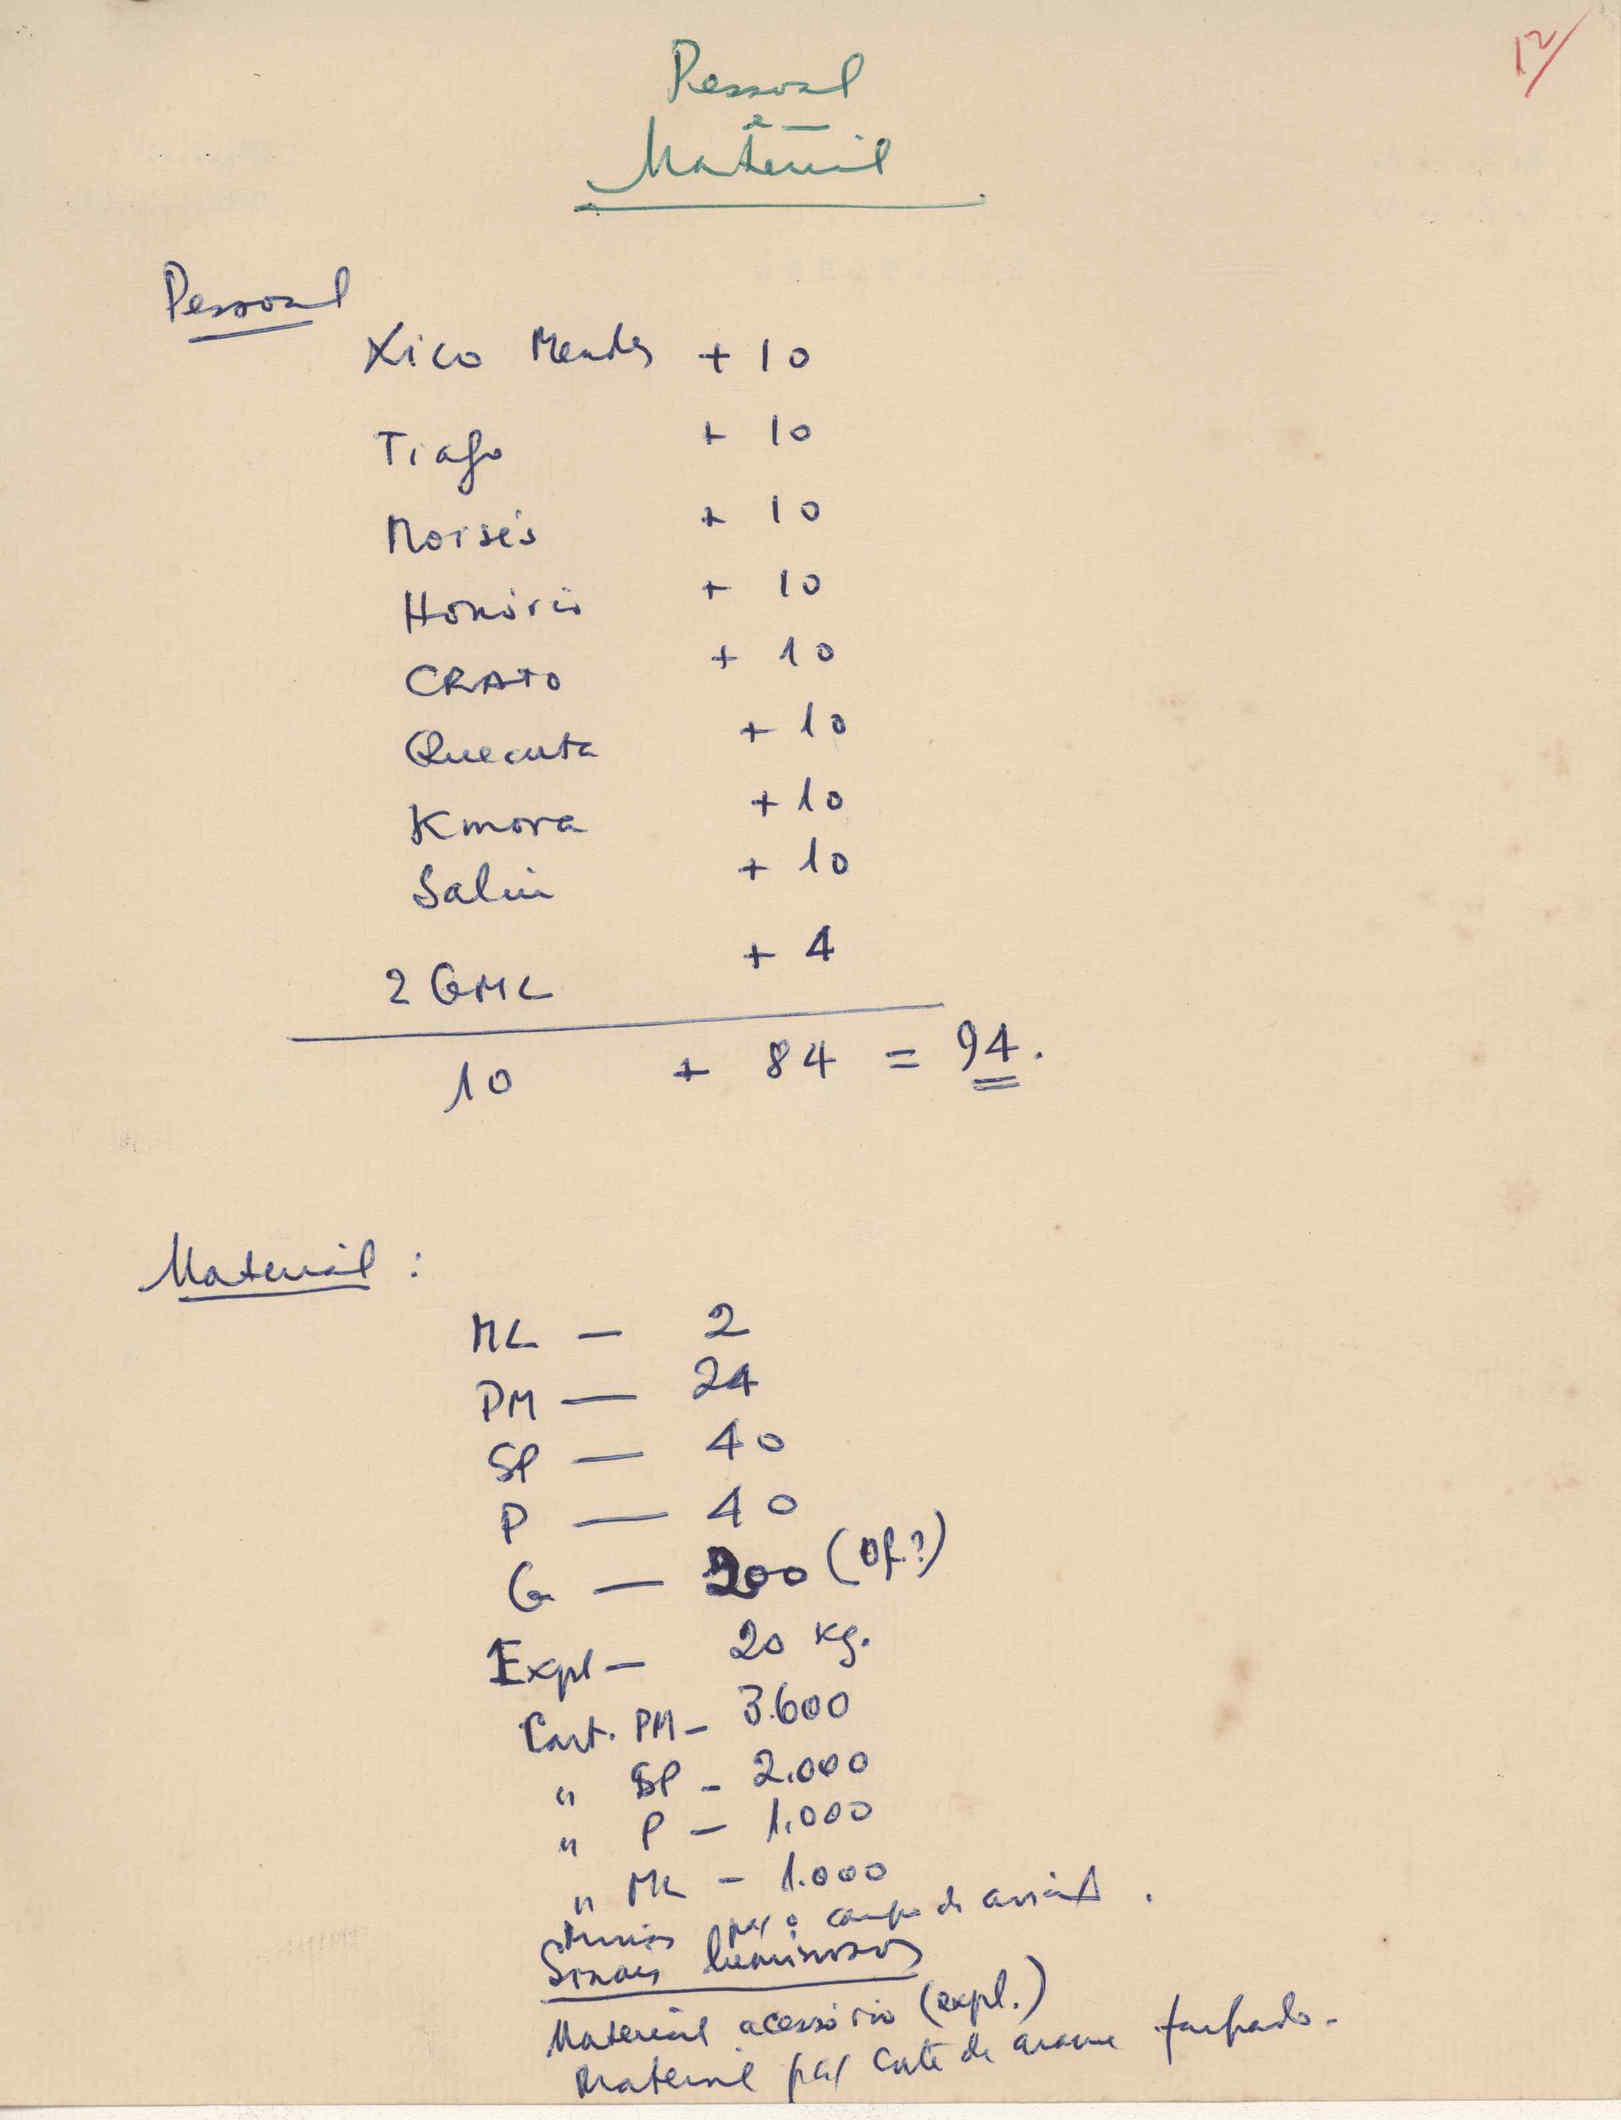 12/
Pessoal
e
Material
Pessoal
Xico Mendes + 10
Tiago + 10
Moisés + 10
Honório + 10
CRATO + 10
Quecuta + 10
Kmora + 10
Salin + 10
2 GML + 4
10 + 84 = 94.
Material :
ML — 2
PM — 24
SP — 40
P — 40
G — 200 (Of.?)
Expl — 20 kg.
Cart. PM — 3.600
" SP — 2.000
" P — 1.000
" ML — 1.000
para o campo de
Sinais luminosos
Material acessório (expl.)
Material par corte de arame farpado.